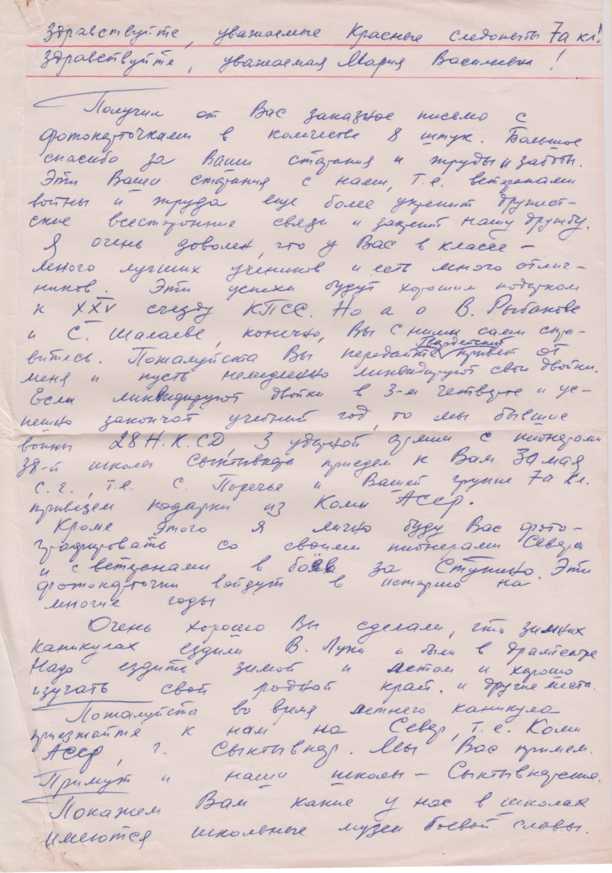 Здравствуйте, уважаемые Красные следопыты 7а кл!
Здравствуйте, уважаемая Мария Васильевна!
Получил от Вас заказное письмо с
фотокарточками в количестве 8 штук. Большое
спасибо за Ваши старания и труды и заботы.
Эти Ваши старания с нами, т.е. ветеранами
войны и труда еще более укрепит дружест-
ские всесторонние связи и зацепит нашу дружбу.
Я очень доволен, что у Вас в классе –
много лучших учеников и есть много отлич-
ников. Эти успехи будут хорошим подарком
к XXV съезду КПСС. Но а о В. Рыбакове
и С. Шалаеве, конечно, Вы с ними сами спра-
витесь. Пожалуйста Вы передайте привет от
меня и пусть немедленно ликвидируют свои двойки.
Если ликвидируют двойки в 3-й четверти и ус-
пешно закончат учебный год, то мы бывшие
воины 28 Н.К.СД, 3 ударной армии с пионерами
38-й школы Сыктывкара приедем к Вам 30 мая
с.г., т.е. с. Поречье и Вашей группе 7а кл.
привезем подарки из Коми АССР.
Кроме этого я лично буду Вас фото-
графировать со своими пионерами Севера
и с ветеранами в боев за Ступино. Эти
фотокарточки войдут в историю на
многие годы
Очень хорошо Вы сделали, что зимних
каникулах ездили В. Луки и были в драмтеатре
Надо ездить зимой и летом и хорошо
изучать свой родной край. и другие места.
Пожалуйста во время летнего каникула
приезжайте к нам на Север, т.е. Коми
АССР, г. Сыктывкар. Мы Вас примем.
Примут и наши школы – Сыктывкарские.
Покажем Вам какие у нас в школах
имеются школьные музеи боевой славы.